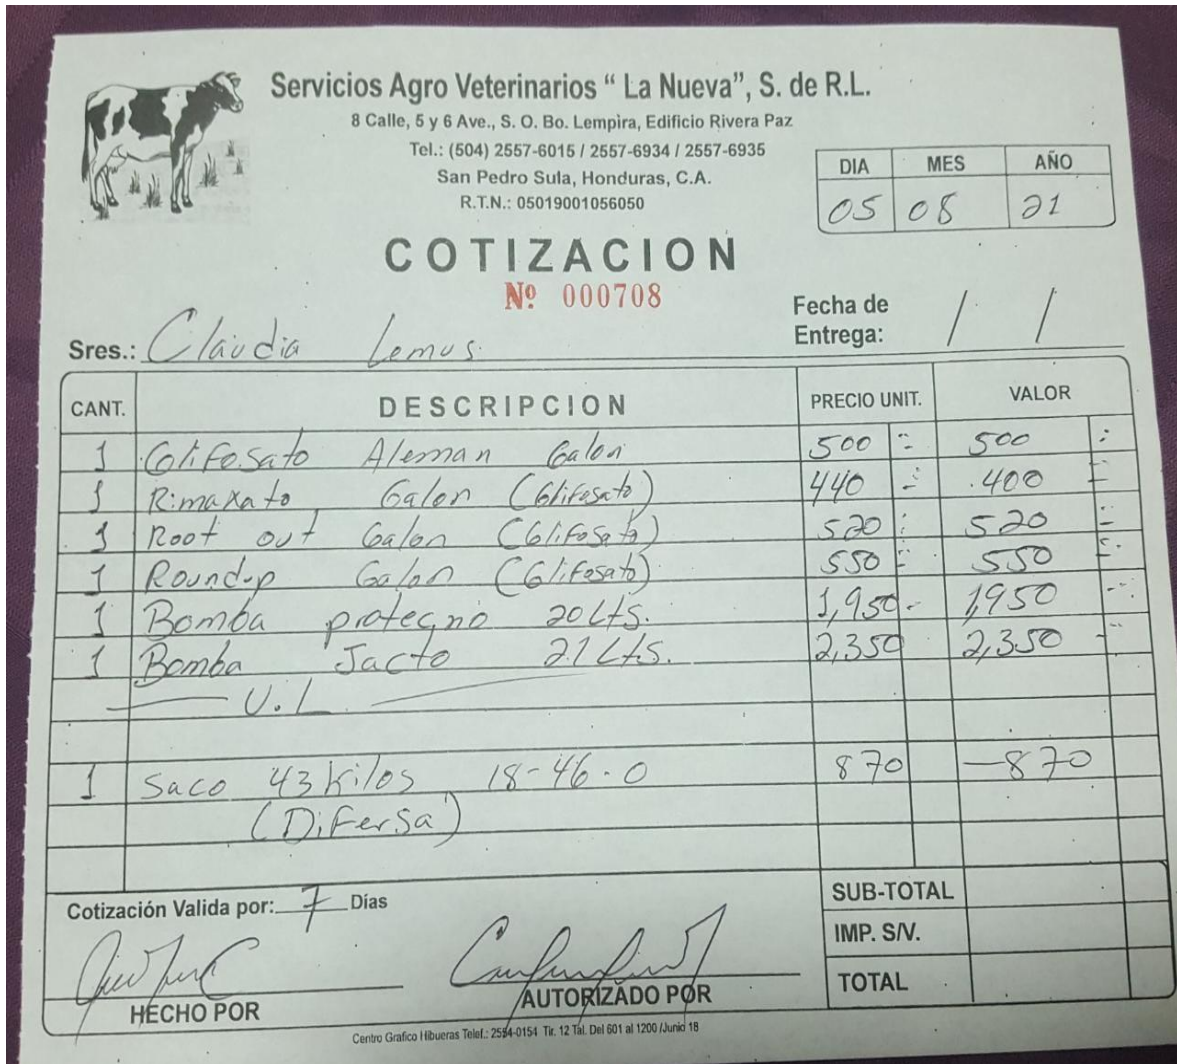 Servicios Agro Veterinarios “ La Nueva”, S. de R.L.
8 Calle, 5 y 6 Ave., S. O. Bo. Lempira, Edificio Rivera Paz
Tel.: (504) 2557-6015 / 2557-6934 / 2557-6935
San Pedro Sula, Honduras, C.A.
R.T.N.: 05019001056050
DIA MES AÑO
05 08 21
COTIZACION
Nº 000708
Fecha de
Entrega: / /
Sres.: Claudia Lemus.
CANT. DESCRIPCION PRECIO UNIT. VALOR
1 Glifosato Aleman Galon 500 500
1 Rimaxato Galon (Glifosato) 440 400
1 Root out Galon (Glifosato) 520 520
1 Roundup Galon (Glifosato) 550 550
1 Bomba protecno 20 Lts. 1,950- 1,950
1 Bomba Jacto 21 Lts. 2,350 2,350
U.L
1 Saco 43 Kilos 18-46-0 870 -870
(Difersa)
Cotización Valida por: 7 Días
SUB-TOTAL
IMP. S/V.
TOTAL
HECHO POR
AUTORIZADO POR
Centro Grafico Hibueras Telef.: 2554-0154 Tir. 12 Tal. Del 601 al 1200 /Junio 18